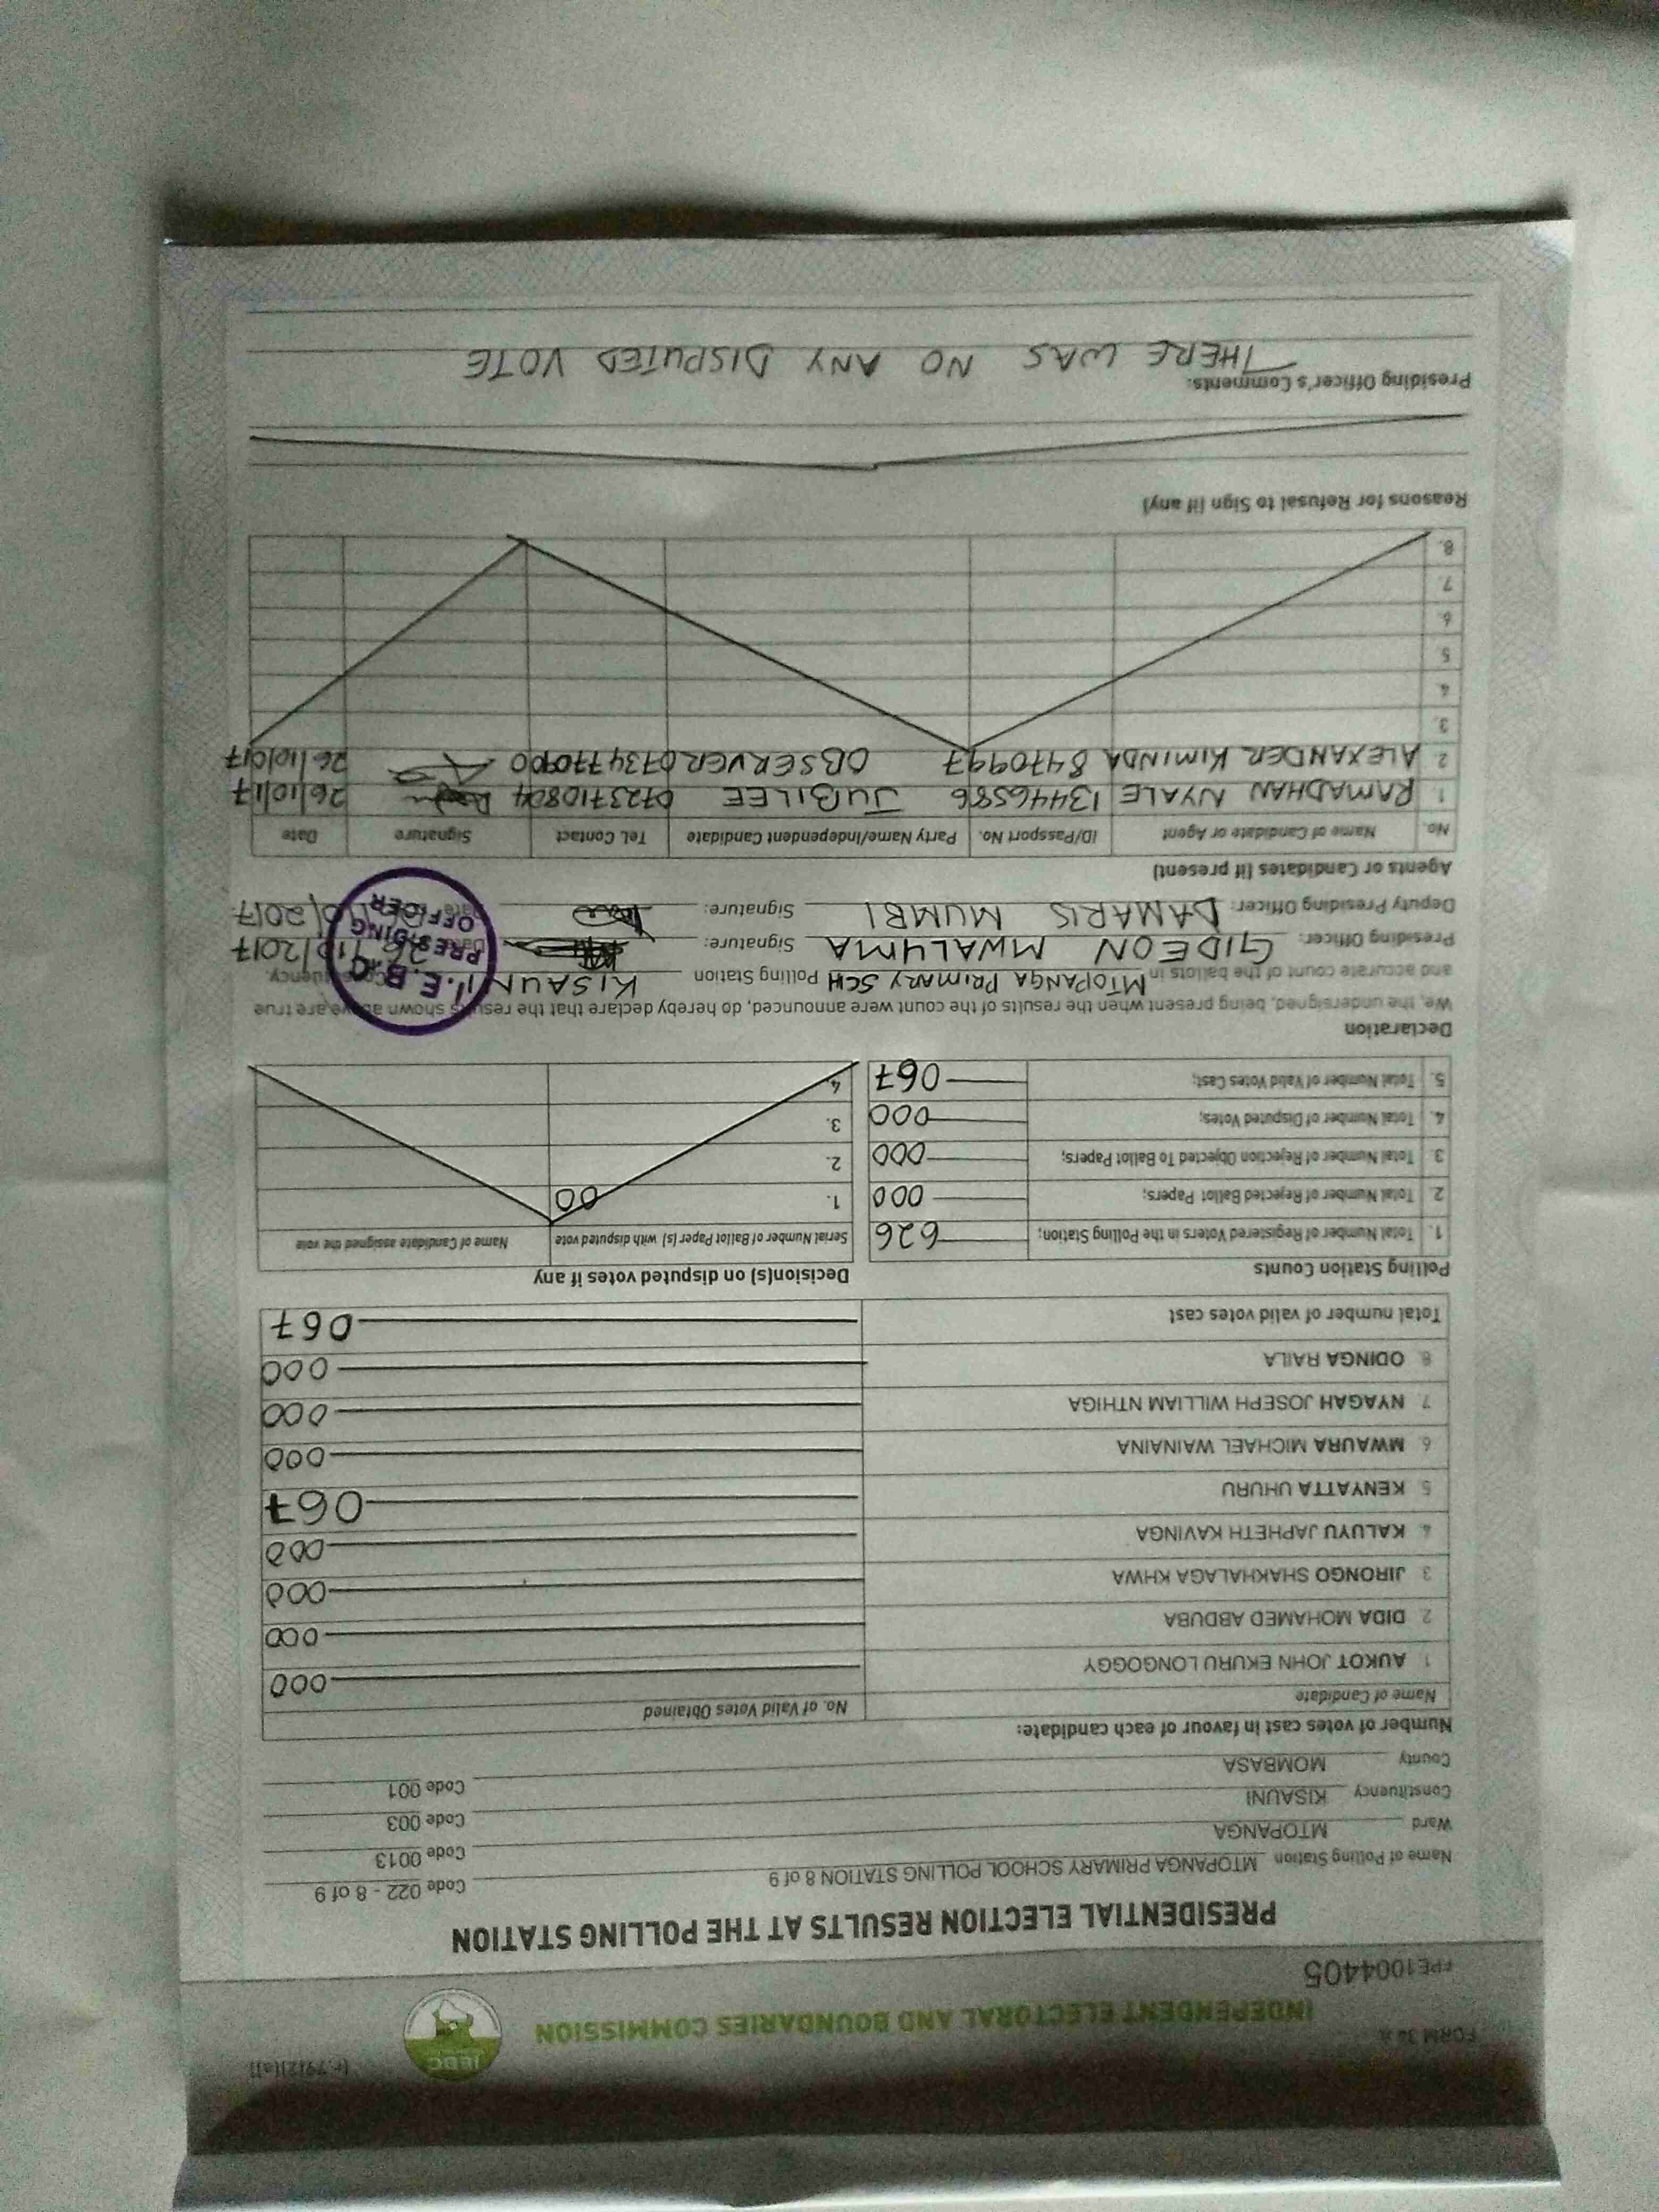 FORM 34 A (r.79(2)(a))
INDEPENDENT ELECTORAL AND BOUNDARIES COMMISSION
IEBC
PRESIDENTIAL ELECTION RESULTS AT THE POLLING STATION
Name of Polling Station MTOPANGA PRIMARY SCHOOL POLLING STATION 8 of 9 Code 022 - 8 of 9
Ward MTOPANGA Code 0013
Constituency KISAUNI Code 003
County MOMBASA Code 001
Number of votes cast in favour of each candidate:
Name of Candidate No. of Valid Votes Obtained
1 AUKOT JOHN EKURU LONGOGGY 000
2 DIDA MOHAMED ABDUBA 000
3 JIRONGO SHAKHALAGA KHWA 000
4 KALUYU JAPHETH KAVINGA 000
5 KENYATTA UHURU 067
6 MWAURA MICHAEL WAINAINA 000
7 NYAGAH JOSEPH WILLIAM NTHIGA 000
8 ODINGA RAILA 000
Total number of valid votes cast 067
Polling Station Counts
1. Total Number of Registered Voters in the Polling Station; 626
2. Total Number of Rejected Ballot Papers; 000
3. Total Number of Rejection Objected To Ballot Papers; 000
4. Total Number of Disputed Votes; 000
5. Total Number of Valid Votes Cast; 067
Decision(s) on disputed votes if any
Serial Number of Ballot Paper (s) with disputed vote Name of Candidate assigned the vote
1. 00
2.
3.
4.
Declaration
We, the undersigned, being present when the results of the count were announced, do hereby declare that the results shown above are true
and accurate count of the ballots in MTOPANGA PRIMARY SCH Polling Station KISAUNI Constituency.
Presiding Officer: GIDEON MWALUMA Signature: Date 26/10/2017
Deputy Presiding Officer: DAMARIS MUMBI Signature: Date 26/10/2017
I.E.B.C
PRESIDING
OFFICER
Agents or Candidates (if present)
No. Name of Candidate or Agent ID/Passport No. Party Name/Independent Candidate Tel. Contact Signature Date
1 RAMADHAN NYALE 13446586 JUBILEE 26/10/17
2. ALEXANDER KIMINDA 8470997 OBSERVER 26/10/017
3.
4
5
6
7
8.
Reasons for Refusal to Sign (if any)
Presiding Officer's Comments:
THERE WAS NO ANY DISPUTED VOTE